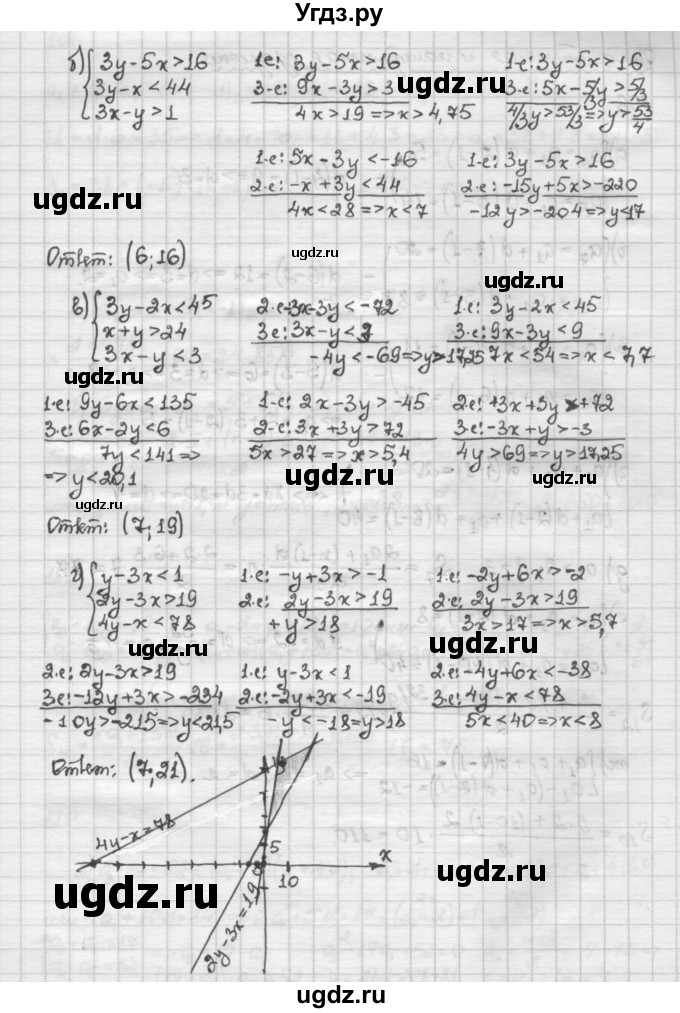 Угдз.ру
б) { 3y-5x>16   1е: 3y-5x>16   1-е: 3y-5x>16
3y-x<44   3-е: 9x-3y>3   3-е: 5x-5/3y>5/3
3x-y>1   4x>19 => x>4,75   4/3y>53/3 => y>53/4
ugdz.ru
ugdz.ru
1-е: 5x-3y<-16   1-е: 3y-5x>16
2-е: -x+3y<44   2-е: -15y+5x>-220
4x<28 => x<7   -12y>-204 => y<17
ugdz.ru
ugdz.ru
Ответ: (6;16)
ugdz.ru
в) { 3y-2x<45   2-е -3x-3y<-72   1-е: 3y-2x<45
x+y>24   3е: 3x-y<3   3-е: 9x-3y<9
3x-y<3   -4y<-69 => y>17,25   7x<54 => x<7,7
ugdz.ru
ugdz.ru
1-е: 9y-6x<135   1-е: 2x-3y>-45   2е: +3x+3y>+72
3-е: 6x-2y<6   2-е: 3x+3y>72   3-е: -3x+y>-3
7y<141 =>   5x>27 => x>5,4   4y>69 => y>17,25
=> y<20,1
ugdz.ru
ugdz.ru
ugdz.ru
Ответ: (7;19)
ugdz.ru
г) { y-3x<1   1-е: -y+3x>-1   1-е: -2y+6x>-2
2y-3x>19   2-е: 2y-3x>19   2-е: 2y-3x>19
4y-x<78   +y>18   3x>17 => x>5,7
ugdz.ru
ugdz.ru
2-е: 2y-3x>19   1-е: y-3x<1   2-е: -4y+6x<-38
3е: -12y+3x>-234   2-е: -2y+3x<-19   3-е: 4y-x<78
-10y>-215 => y<21,5   -y<-18 = y>18   5x<40 => x<8
ugdz.ru
Ответ: (7;21).
ugdz.ru
4y-x=78
5
x
0
10
2y-3x=19
ugdz.ru
ugdz.ru
ugdz.ru